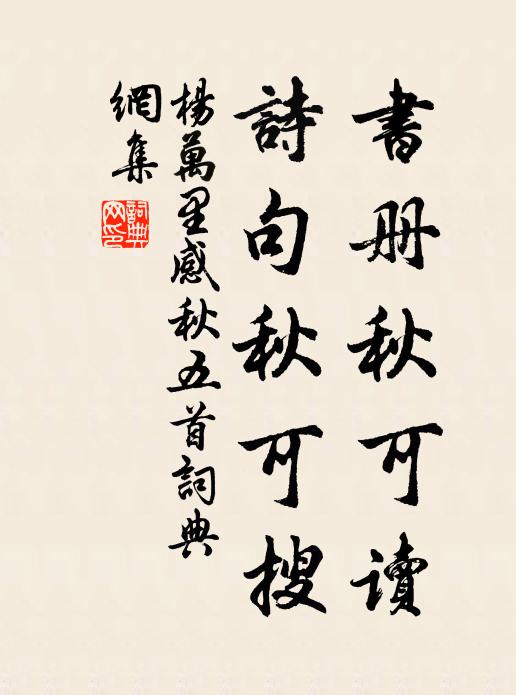 書册秋可讀
詩句秋可搜
楊萬里感秋五首詞典
網集
詞典
网印